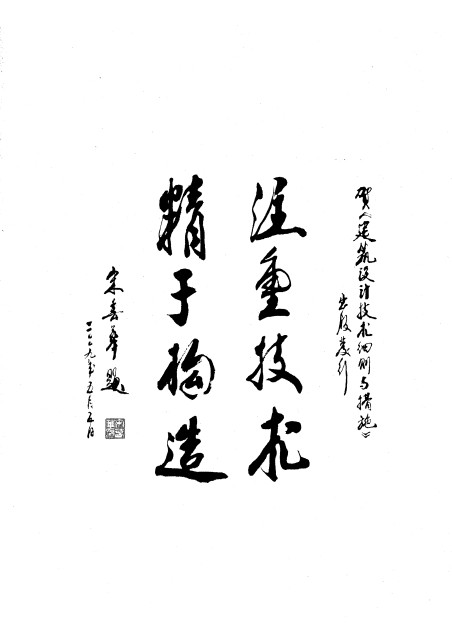 贺《建筑设计技术细则与措施》
出版发行
注重技术
精于构造
宋春华 题
二〇〇九年五月五日